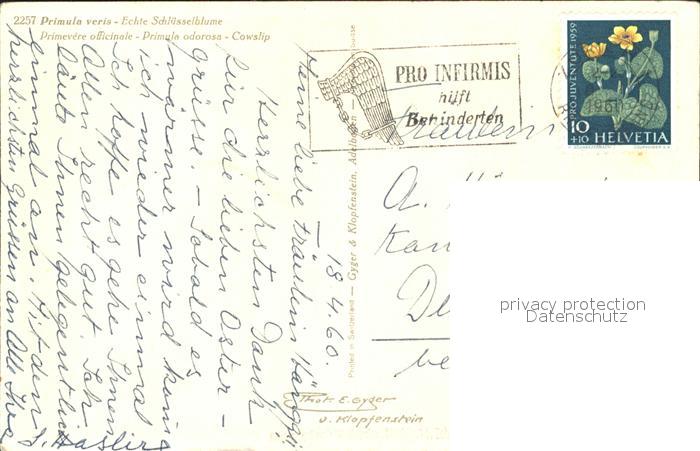 2257 Primula veris - Echte Schlüsselblume
Primevère officinale - Primula odorosa - Cowslip
PRO INFIRMIS
hilft
Behinderten
PRO JUVENTUTE 1959
10
+10 HELVETIA
Fräulein
18.4.60.
Meine liebe Fräulein
Herzlichsten Dank
für die lieben Oster-
grüsse. - Sobald es
wärmer wird komme
ich wieder einmal
Ich hoffe es gehe Ihnen
Allen recht gut. Ich
läute Ihnen gelegentlich
einmal an. Mit den
herzlichsten Grüssen an Alle Ihre
S. Hasler
Printed in Switzerland — Gyger & Klopfenstein, Adelboden — Suisse
Phot. E. Gyger
u. Klopfenstein
privacy protection
Datenschutz